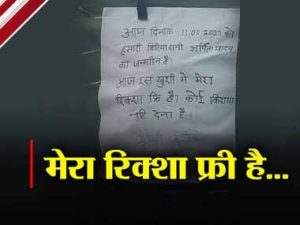 आज दिनांक 11.03.2021 को
हमारी बिटिया रानी अर्पिता यादव
का जन्मदिन है।
आज इस खुशी में मेरा
रिक्शा फ्रि है। कोई किराया
नहि देना है।
मेरा रिक्शा फ्री है...